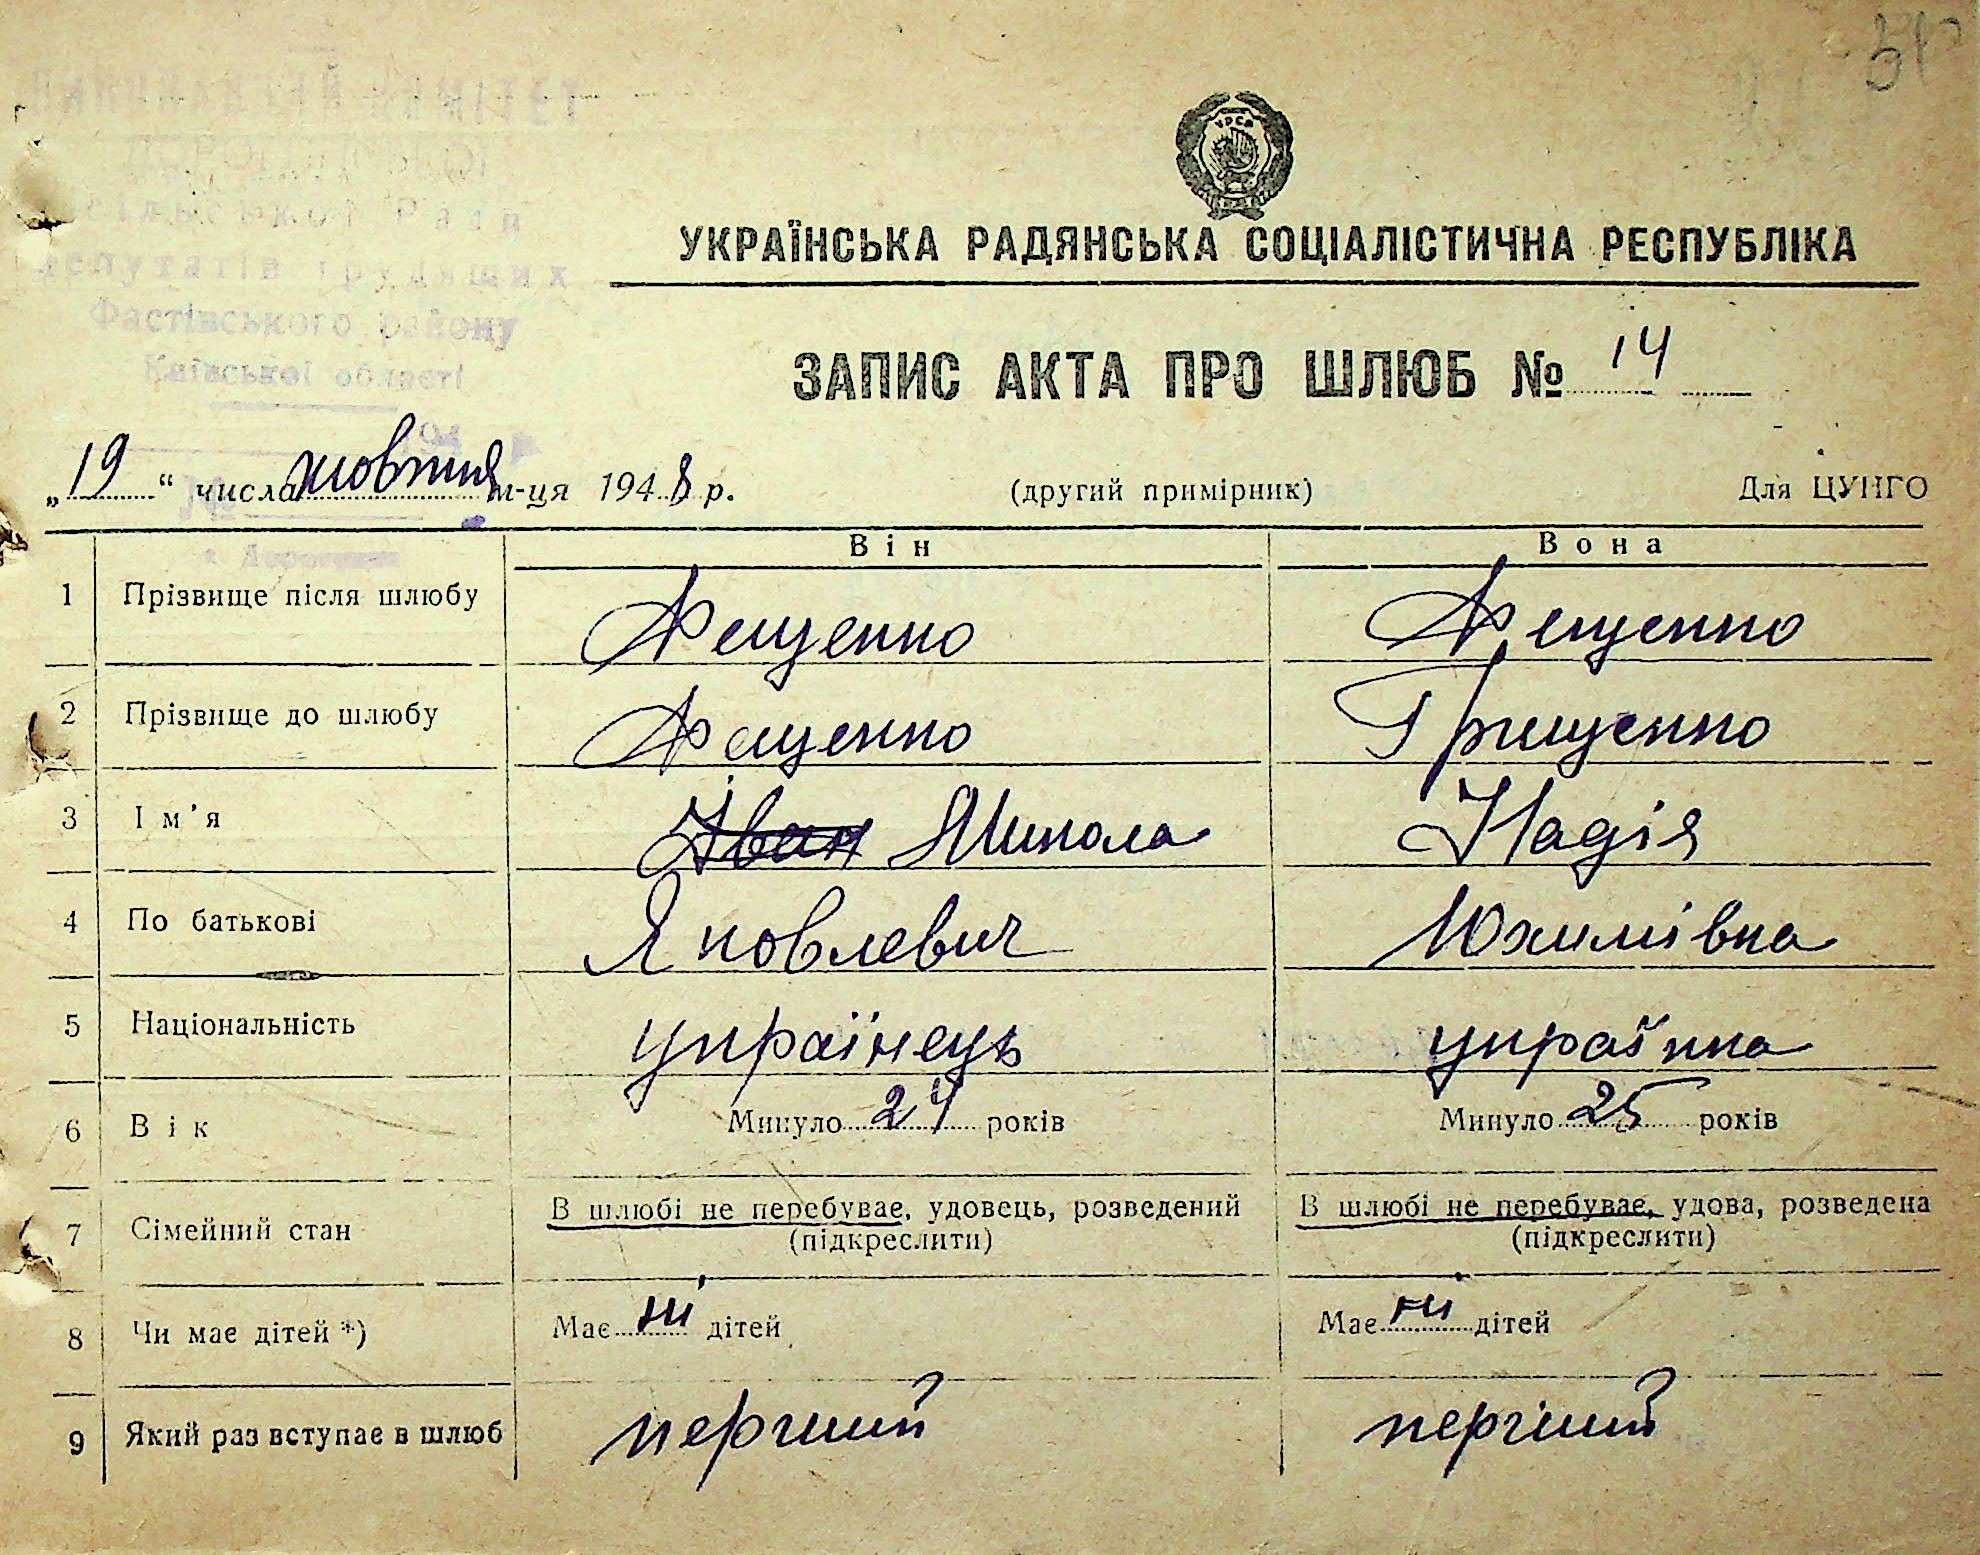 51
ВИКОНАВЧИЙ КОМІТЕТ
сільської Ради
депутатів трудящих
Фастівського району
Київської області
УРСР
УКРАЇНСЬКА РАДЯНСЬКА СОЦІАЛІСТИЧНА РЕСПУБЛІКА
ЗАПИС АКТА ПРО ШЛЮБ № 14
„19“ числа жовтня м-ця 1948 р. (другий примірник) Для ЦУНГО
Він Вона
1 Прізвище після шлюбу Фещенко Фещенко
2 Прізвище до шлюбу Фещенко Грищенко
3 Ім'я Іван Микола Надія
4 По батькові Яковлевич Юхимівна
5 Національність українець українка
6 Вік Минуло 24 років Минуло 25 років
7 Сімейний стан В шлюбі не перебуває, удовець, розведений В шлюбі не перебуває, удова, розведена
(підкреслити) (підкреслити)
8 Чи має дітей *) Має ні дітей Має ні дітей
9 Який раз вступає в шлюб перший перший